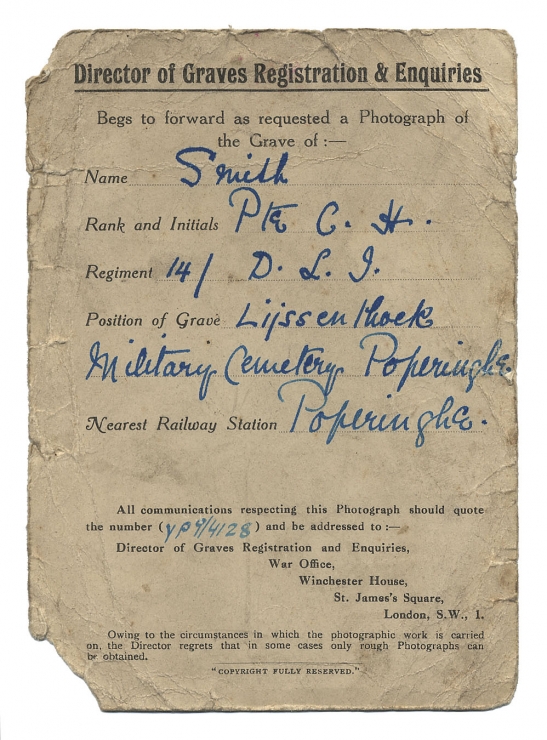 Director of Graves Registration & Enquiries
Begs to forward as requested a Photograph of
the Grave of :—
Name Smith
Rank and Initials Pte C. H.
Regiment 14/ D. L. I.
Position of Grave Lijssenthoek
Military Cemetery Poperinghe
Nearest Railway Station Poperinghe.
All communications respecting this Photograph should quote
the number (YP4/4128) and be addressed to :—
Director of Graves Registration and Enquiries,
War Office,
Winchester House,
St. James's Square,
London, S.W., 1.
Owing to the circumstances in which the photographic work is carried
on, the Director regrets that in some cases only rough Photographs can
be obtained.
"COPYRIGHT FULLY RESERVED."